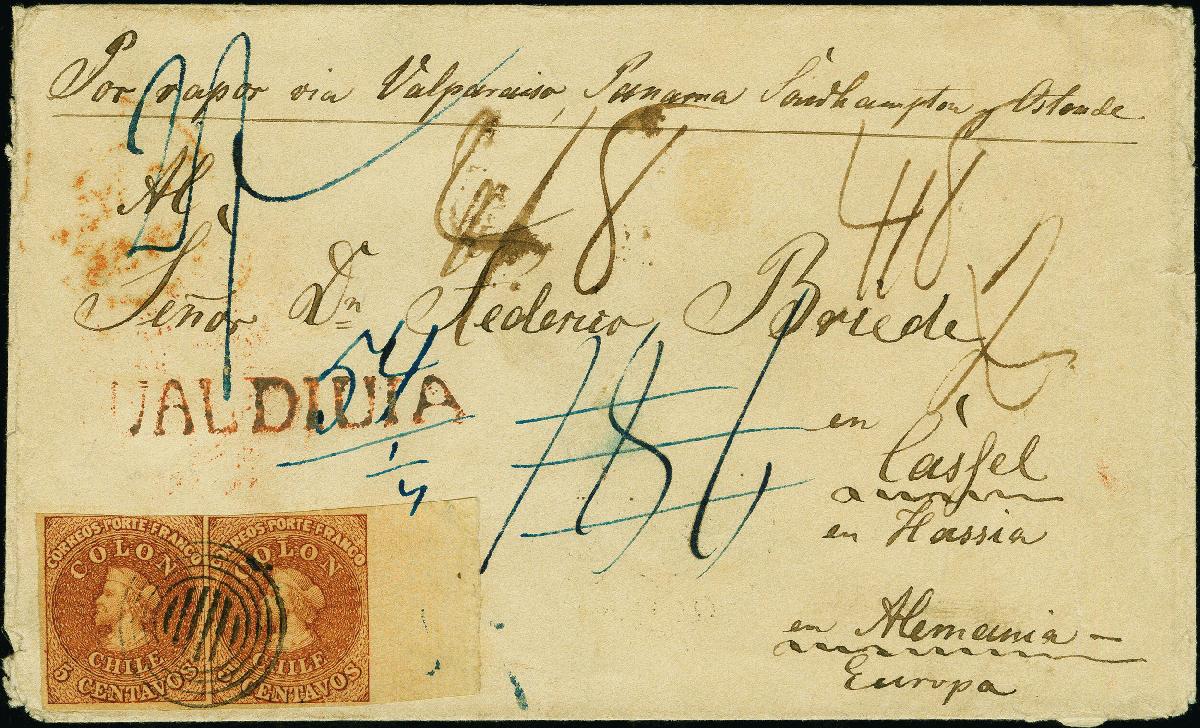 Por vapor via Valparaiso, Panama Southampton y Ostende
Al
Señor Dn Federico Briede
en
Cassel
en Hassia
en Alemania –
Europa
VALDIVIA
48
48
2
54
1/4
CORREOS PORTE FRANCO
COLON
CHILE
5 CENTAVOS
CORREOS PORTE FRANCO
COLON
CHILE
5 CENTAVOS